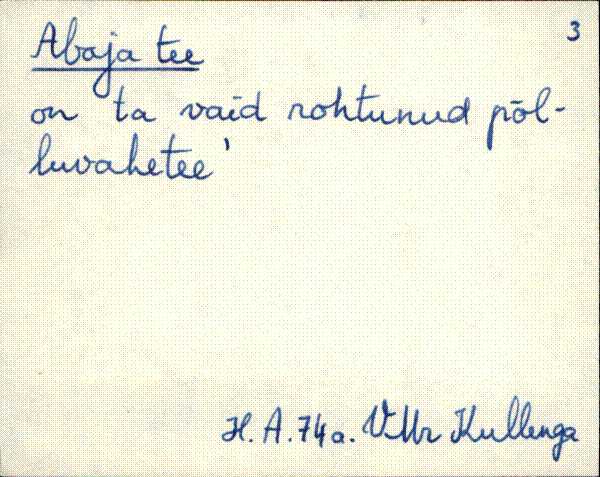 3
Abaja tee
on ta vaid rohtunud põl-
luvahetee'
H. A. 74 a. VMr Kullenga